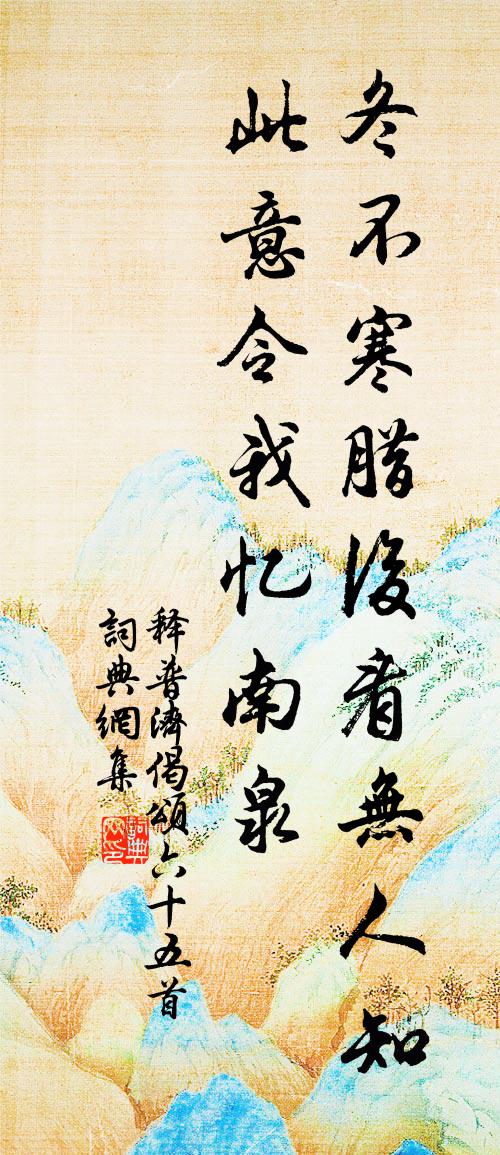 冬不寒腊後看無人知
此意令我忆南泉
释普濟偈頌六十五首
詞典網集
詞典
网印